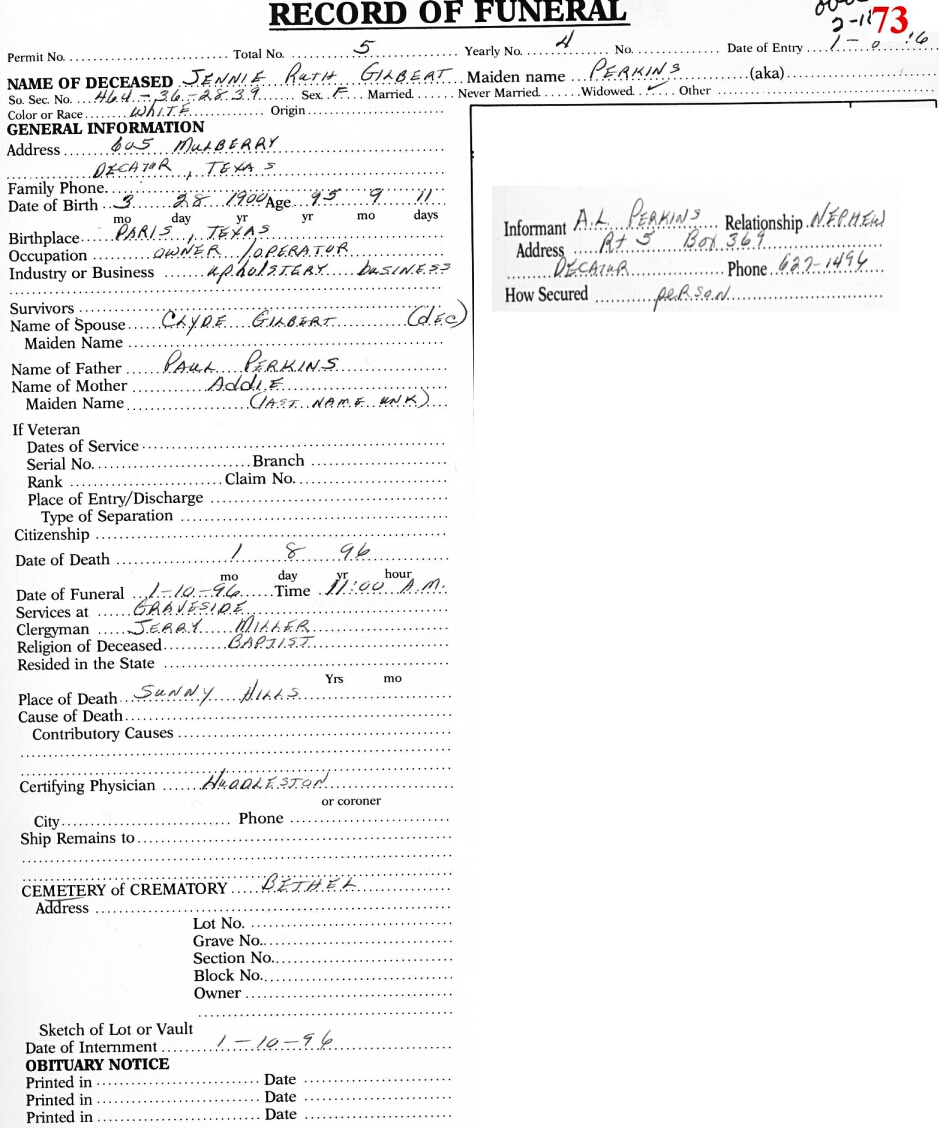 RECORD OF FUNERAL
73
Permit No. Total No. 5 Yearly No. 4 No. Date of Entry
NAME OF DECEASED JENNIE RUTH GILBERT Maiden name PERKINS (aka)
So. Sec. No. 464-36-2839 Sex F Married Never Married Widowed ✓ Other
Color or Race WHITE Origin
GENERAL INFORMATION
Address 605 MULBERRY
DECATOR, TEXAS
Family Phone
Date of Birth 3 28 1900 Age 95 9 11
mo day yr yr mo days
Birthplace PARIS, TEXAS
Occupation OWNER/OPERATOR
Industry or Business UPHOLSTERY BUSINESS
Survivors
Name of Spouse CLYDE GILBERT (dec)
Maiden Name
Name of Father PAUL PERKINS
Name of Mother ADDIE
Maiden Name (LAST NAME UNK)
If Veteran
Dates of Service
Serial No. Branch
Rank Claim No.
Place of Entry/Discharge
Type of Separation
Citizenship
Date of Death 1 8 96
mo day yr hour
Date of Funeral 1-10-96 Time 11:00 A.M.
Services at GRAVESIDE
Clergyman JERRY MILLER
Religion of Deceased BAPTIST
Resided in the State
Yrs mo
Place of Death SUNNY HILLS
Cause of Death
Contributory Causes
Certifying Physician HUDDLESTON
or coroner
City Phone
Ship Remains to
CEMETERY of CREMATORY BETHEL
Address
Lot No.
Grave No.
Section No.
Block No.
Owner
Sketch of Lot or Vault
Date of Internment 1-10-96
OBITUARY NOTICE
Printed in Date
Printed in Date
Printed in Date
Informant A.L. PERKINS Relationship NEPHEW
Address Rt 5 Box 369
DECATUR Phone 627-1496
How Secured PERSON